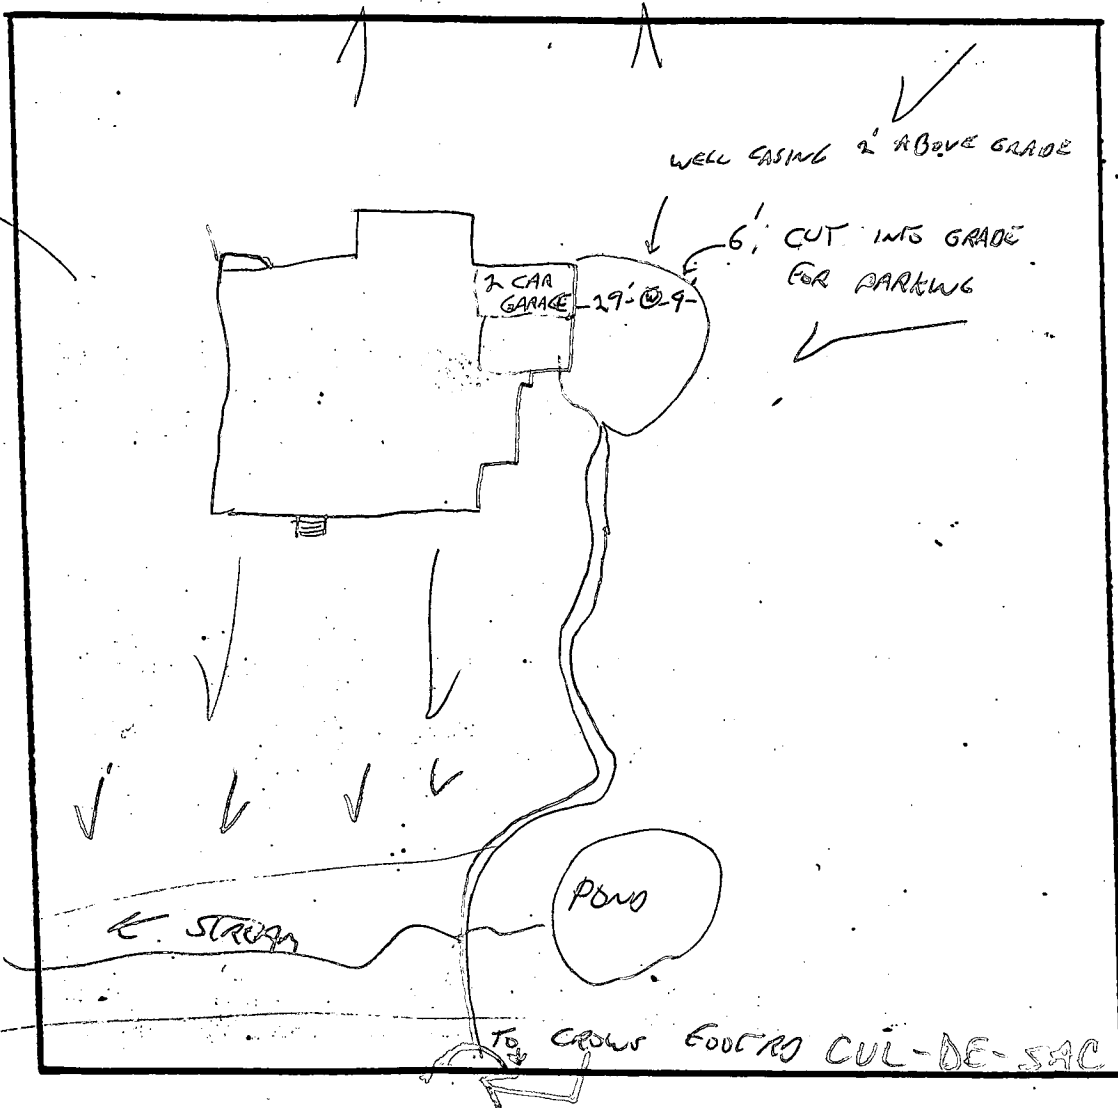 WELL CASING 2' ABOVE GRADE
6' CUT INTO GRADE
FOR PARKING
2 CAR
GARAGE
29' W 9'
POND
STREAM
TO CROWS CUL-DE-SAC